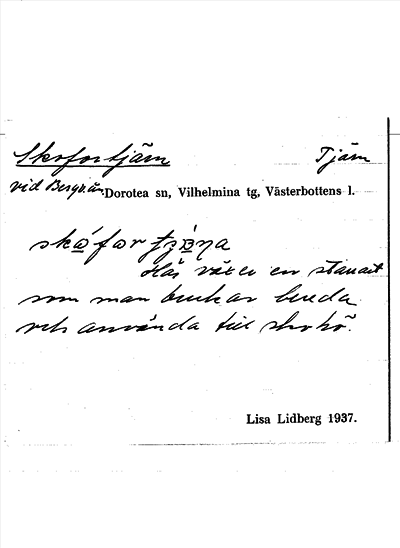 Skofortjärn Tjärn
vid Bergvik. Dorotea sn, Vilhelmina tg, Västerbottens l.
Här växer en starrart
som man brukar bereda
och använda till skohö.
Lisa Lidberg 1937.